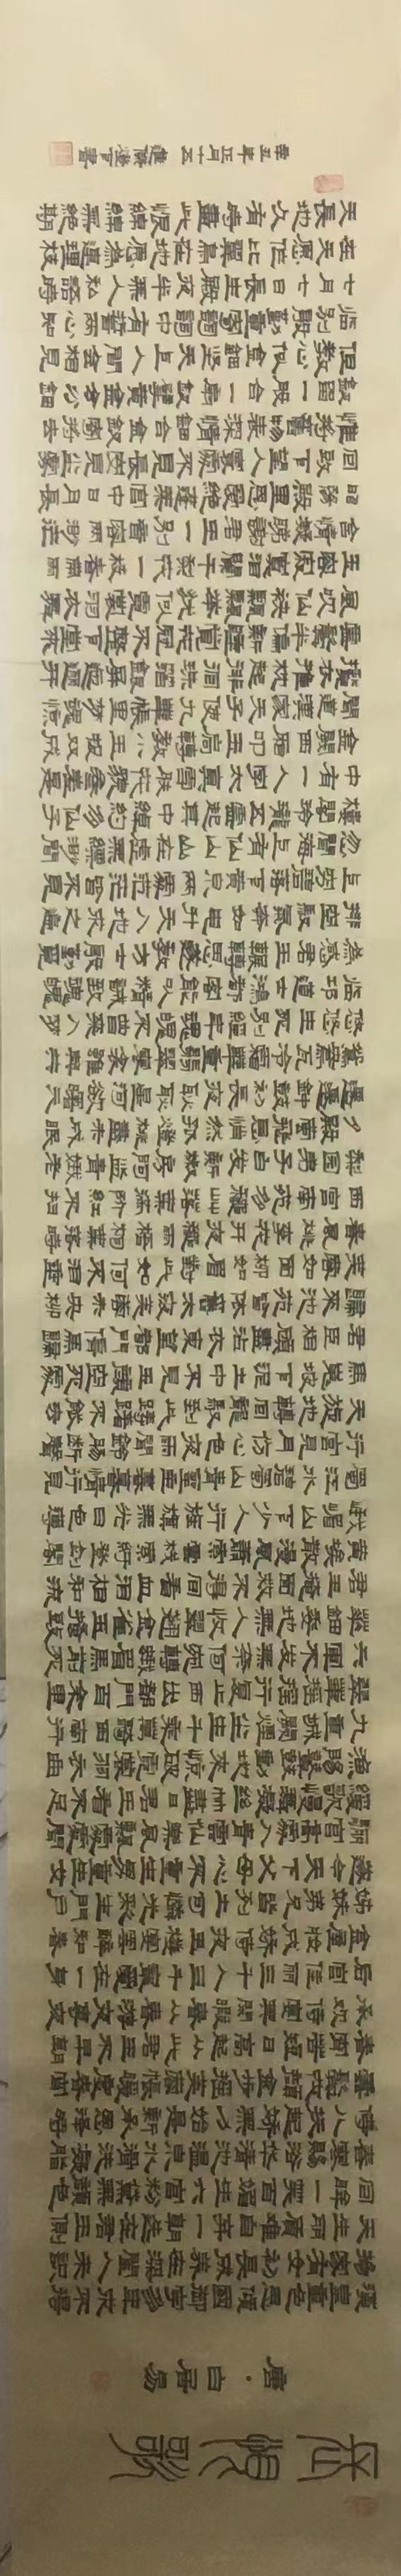 長恨歌
唐·白居易
漢皇重色思傾國御宇多年求不得
楊家有女初長成養在深閨人未識
天生麗質難自棄一朝選在君王側
回眸一笑百媚生六宮粉黛無顏色
春寒賜浴華清池溫泉水滑洗凝脂
侍兒扶起嬌無力始是新承恩澤時
雲鬢花顏金步搖芙蓉帳暖度春宵
春宵苦短日高起從此君王不早朝
承歡侍宴無閒暇春從春遊夜專夜
後宮佳麗三千人三千寵愛在一身
金屋妝成嬌侍夜玉樓宴罷醉和春
姊妹弟兄皆列土可憐光彩生門戶
遂令天下父母心不重生男重生女
驪宮高處入青雲仙樂風飄處處聞
緩歌慢舞凝絲竹盡日君王看不足
漁陽鼙鼓動地來驚破霓裳羽衣曲
九重城闕煙塵生千乘萬騎西南行
翠華搖搖行復止西出都門百餘里
六軍不發無奈何宛轉蛾眉馬前死
花鈿委地無人收翠翹金雀玉搔頭
君王掩面救不得回看血淚相和流
黃埃散漫風蕭索雲棧縈紆登劍閣
峨嵋山下少人行旌旗無光日色薄
蜀江水碧蜀山青聖主朝朝暮暮情
行宮見月傷心色夜雨聞鈴腸斷聲
天旋地轉迴龍馭到此躊躇不能去
馬嵬坡下泥土中不見玉顏空死處
君臣相顧盡沾衣東望都門信馬歸
歸來池苑皆依舊太液芙蓉未央柳
芙蓉如面柳如眉對此如何不淚垂
春風桃李花開夜秋雨梧桐葉落時
西宮南苑多秋草落葉滿階紅不掃
梨園弟子白髮新椒房阿監青娥老
夕殿螢飛思悄然孤燈挑盡未成眠
遲遲鐘鼓初長夜耿耿星河欲曙天
鴛鴦瓦冷霜華重翡翠衾寒誰與共
悠悠生死別經年魂魄不曾來入夢
臨邛道士鴻都客能以精誠致魂魄
為感君王輾轉思遂教方士殷勤覓
排空馭氣奔如電升天入地求之遍
上窮碧落下黃泉兩處茫茫皆不見
忽聞海上有仙山山在虛無縹緲間
樓閣玲瓏五雲起其中綽約多仙子
中有一人字太真雪膚花貌參差是
金闕西廂叩玉扃轉教小玉報雙成
聞道漢家天子使九華帳裏夢魂驚
攬衣推枕起徘徊珠箔銀屏迤邐開
雲鬢半偏新睡覺花冠不整下堂來
風吹仙袂飄飄舉猶似霓裳羽衣舞
玉容寂寞淚闌干梨花一枝春帶雨
含情凝睇謝君王一別音容兩渺茫
昭陽殿裏恩愛絕蓬萊宮中日月長
回頭下望人寰處不見長安見塵霧
惟將舊物表深情鈿合金釵寄將去
釵留一股合一扇釵擘黃金合分鈿
但教心似金鈿堅天上人間會相見
臨別殷勤重寄詞詞中有誓兩心知
七月七日長生殿夜半無人私語時
在天願作比翼鳥在地願為連理枝
天長地久有時盡此恨綿綿無絕期
辛丑年正月十五